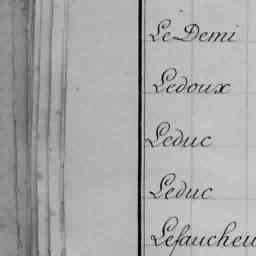 Le Demi
Ledoux
Leduc
Leduc
Lefaucheu